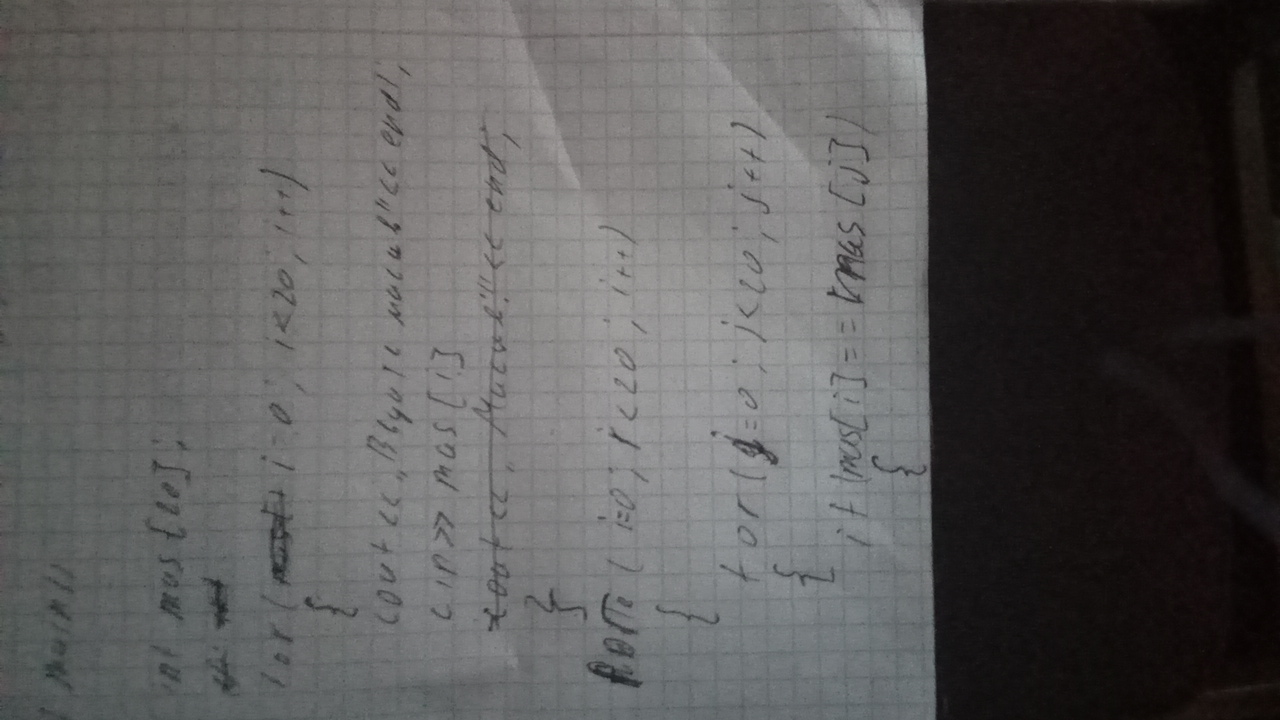 main()
int mas[20];
for ( i=0; i<20; i++)
{
cout<<"Введите масив"<<endl;
cin>>mas[i]
cout<< "Масив:"<< end;
}
for ( i=0; i<20; i++)
{
for (j=0; j<20; j++)
{
if (mas[i]==mas[j])
{